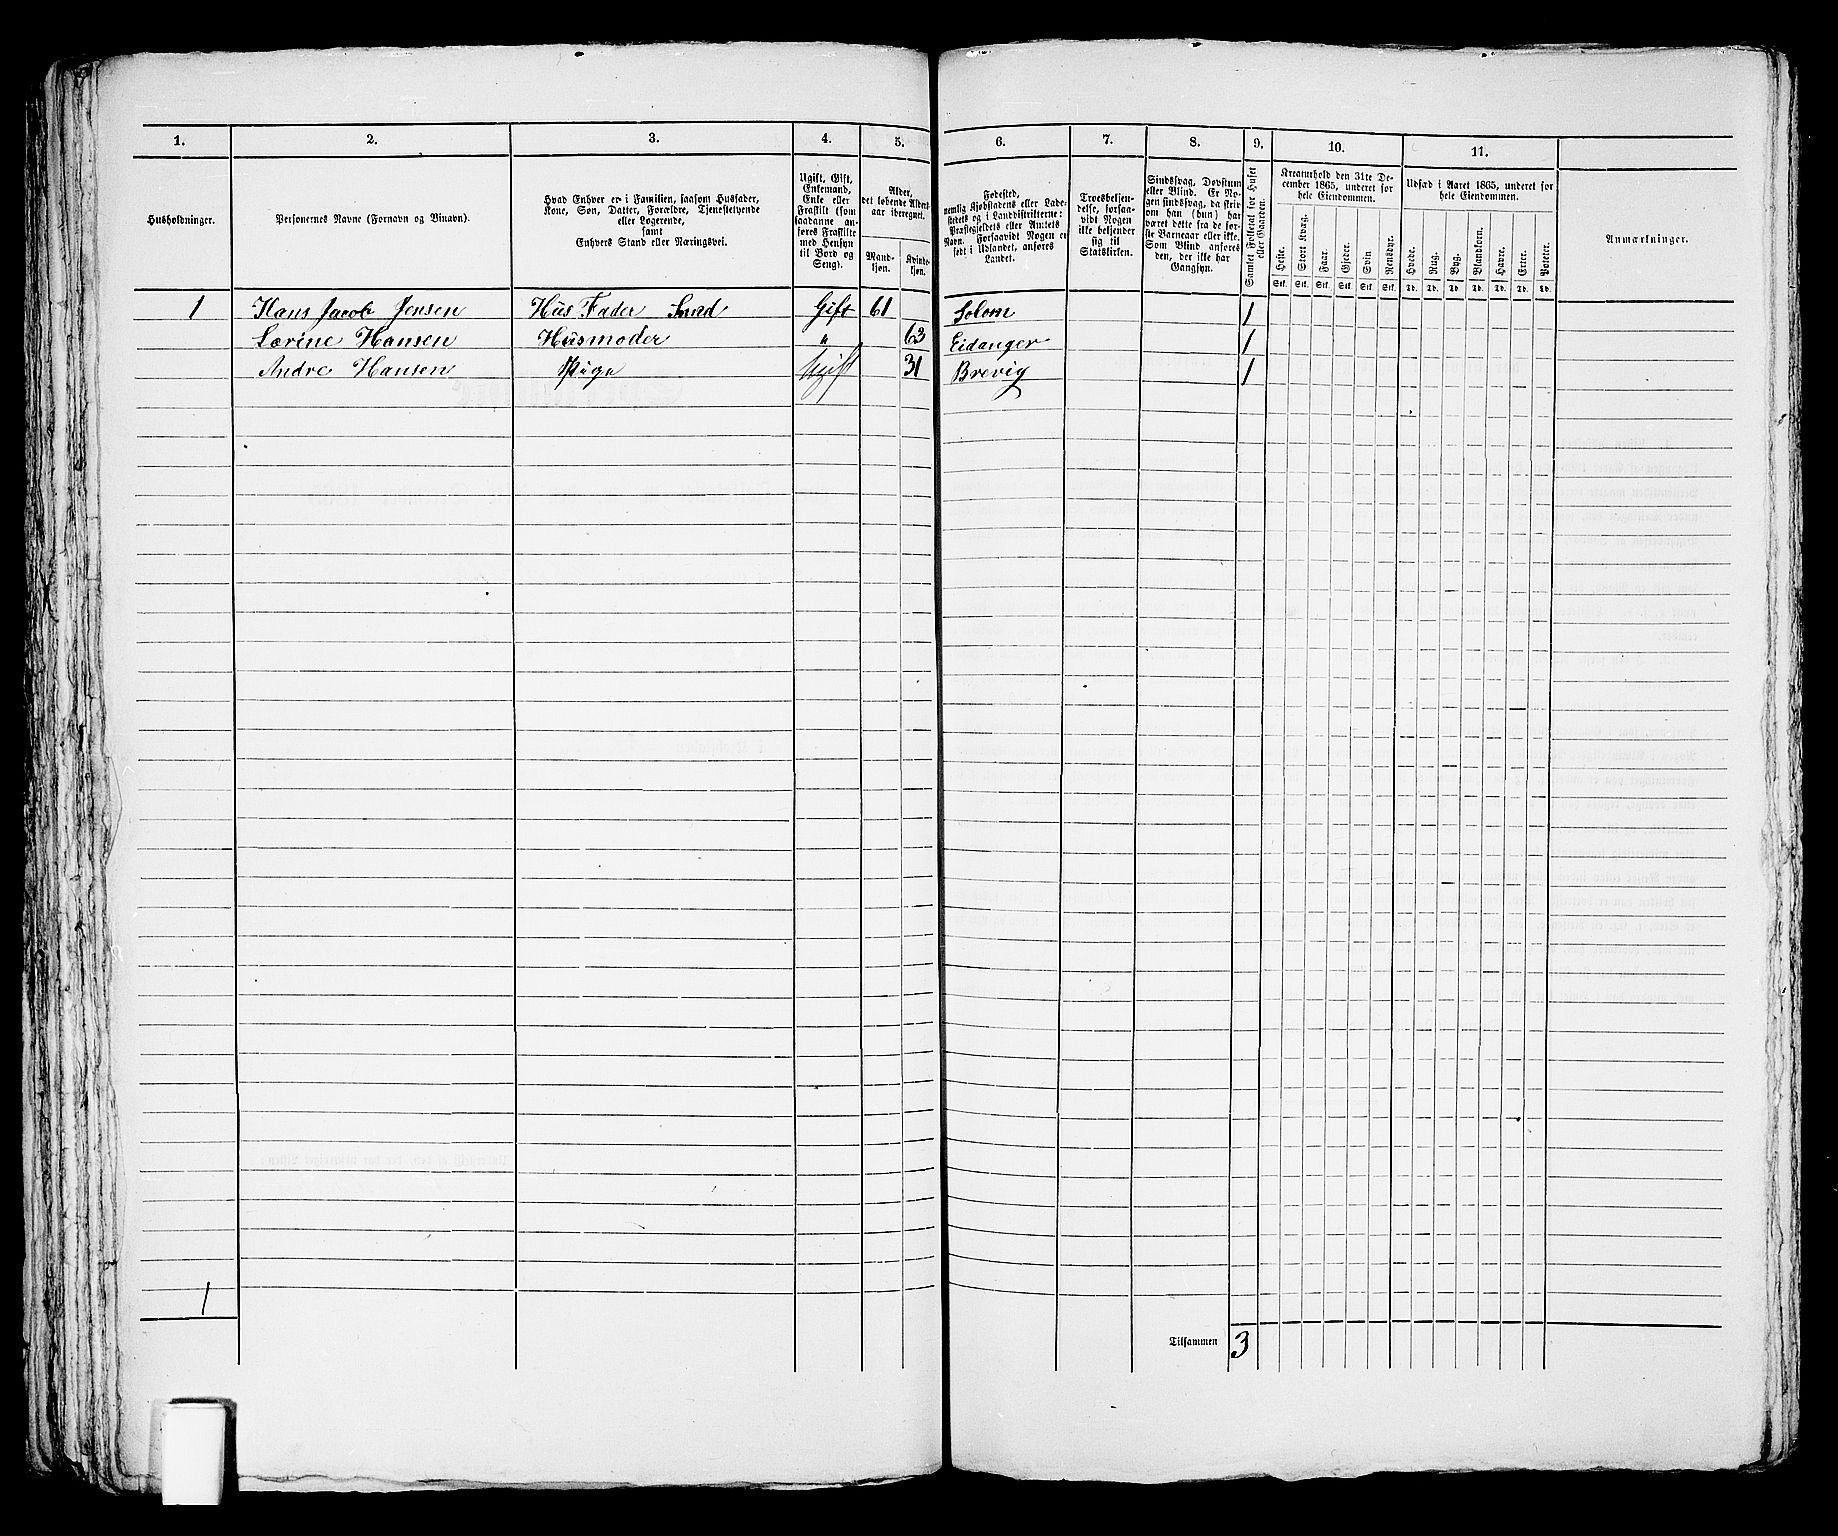 1. 2. 3. 4. 5. 6. 7. 8. 9. 10. 11.
Husholdninger.
Personernes Navne (Fornavn og Binavn).
Hvad Enhver er i Familien, saasom Husfader,
Kone, Søn, Datter, Forældre, Tjenestetyende
eller Logerende,
samt
Enhvers Stand eller Næringsvei.
Ugift, Gift,
Enkemand,
Enke eller
Fraskilt (som
saadanne an-
føres Fraskilte
med Hensyn
til Bord og
Seng).
Alder,
det løbende Alders-
aar iberegnet.
Mand-
kjøn.
Kvinde-
kjøn.
Fødested,
nemlig Kjøbstadens eller Lade-
stedets og i Landdistrikterne:
Præstegjeldets eller Amtets
Navn. Forsaavidt Nogen er
født i Udlandet, anføres
Landet.
Troesbekjen-
delse, forsaa-
vidt Nogen
ikke bekjender
sig til
Statskirken.
Sindssvag, Døvstum
eller Blind. Er No-
gen sindssvag, da skri-
ves om han (hun) har
været dette fra de før-
ste Barneaar eller ikke.
Som Blind anføres
den, der ikke har
Gangsyn.
Samlet Folketal for Huset
eller Gaarden.
Kreaturhold den 31te De-
cember 1865, underet for
hele Eiendommen.
Heste. Stort Kvæg. Faar. Gjeder. Svin Rensdyr.
Stk. Stk. Stk. Stk. Stk. Stk.
Udsæd i Aaret 1865, underet for
hele Eiendommen.
Hvede. Rug. Byg. Blandkorn. Havre. Erter. Poteter.
Td. Td. Td. Td. Td. Td. Td.
Anmærkninger.
1 Hans Jacob Jensen Hus Fader Gift 61 Solom 1
Særine Hansen Husmoder " 63 Eidanger 1
Andre Hansen Pige Ugift 31 Brevig 1
1
Tilsammen 3